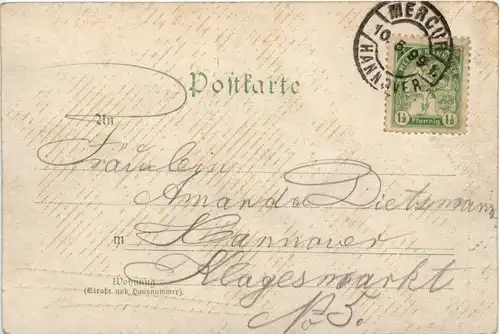 MERCUR
10. 5. 99
HANNOVER
1½ Pfennig 1½
Postkarte
An
Fräulein
Amanda Dietzmann
in Hannover
Wohnung
(Straße und Hausnummer)
Klagesmarkt
No 5.